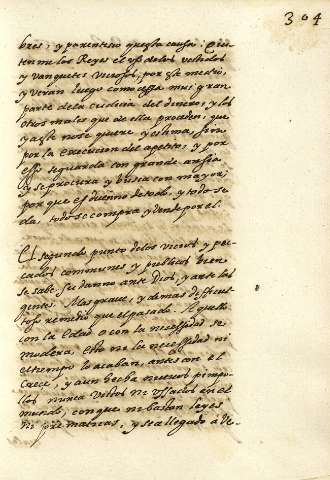 304
bres, y parentesio questa causa. Qui
ten me los Reyes el uso de los vestidos
y vanquetes viciosos, por este medio,
y veran luego como cessa mui gran
parte de la cudicia del dinero, y los
otros males que de ella proceden, que
ya este no se quiere y estima, sino
por la execucion del apetito, y por
esso se guarda con grande ansia
y se procura y busca con mayor;
por que es dueño de todo, y todo se
da, todo se compra y vende por el.
El segundo punto de los vicios y pe
cados communes y publicos bien
se sabe su danno ante Dios, y ante las
gentes. Mas graue, y de mas
remedio que el pasado. Aquello
con la edad o con la necessidad se
modera, esto ni la necessidad ni
el tiempo lo acaban, antes con el
crece, y aun hecha nuevos pimpo
llos nunca vistos ni ussados en el
mundo, con que ni bastan leyes
ni prematicas, y se a llegado a te-